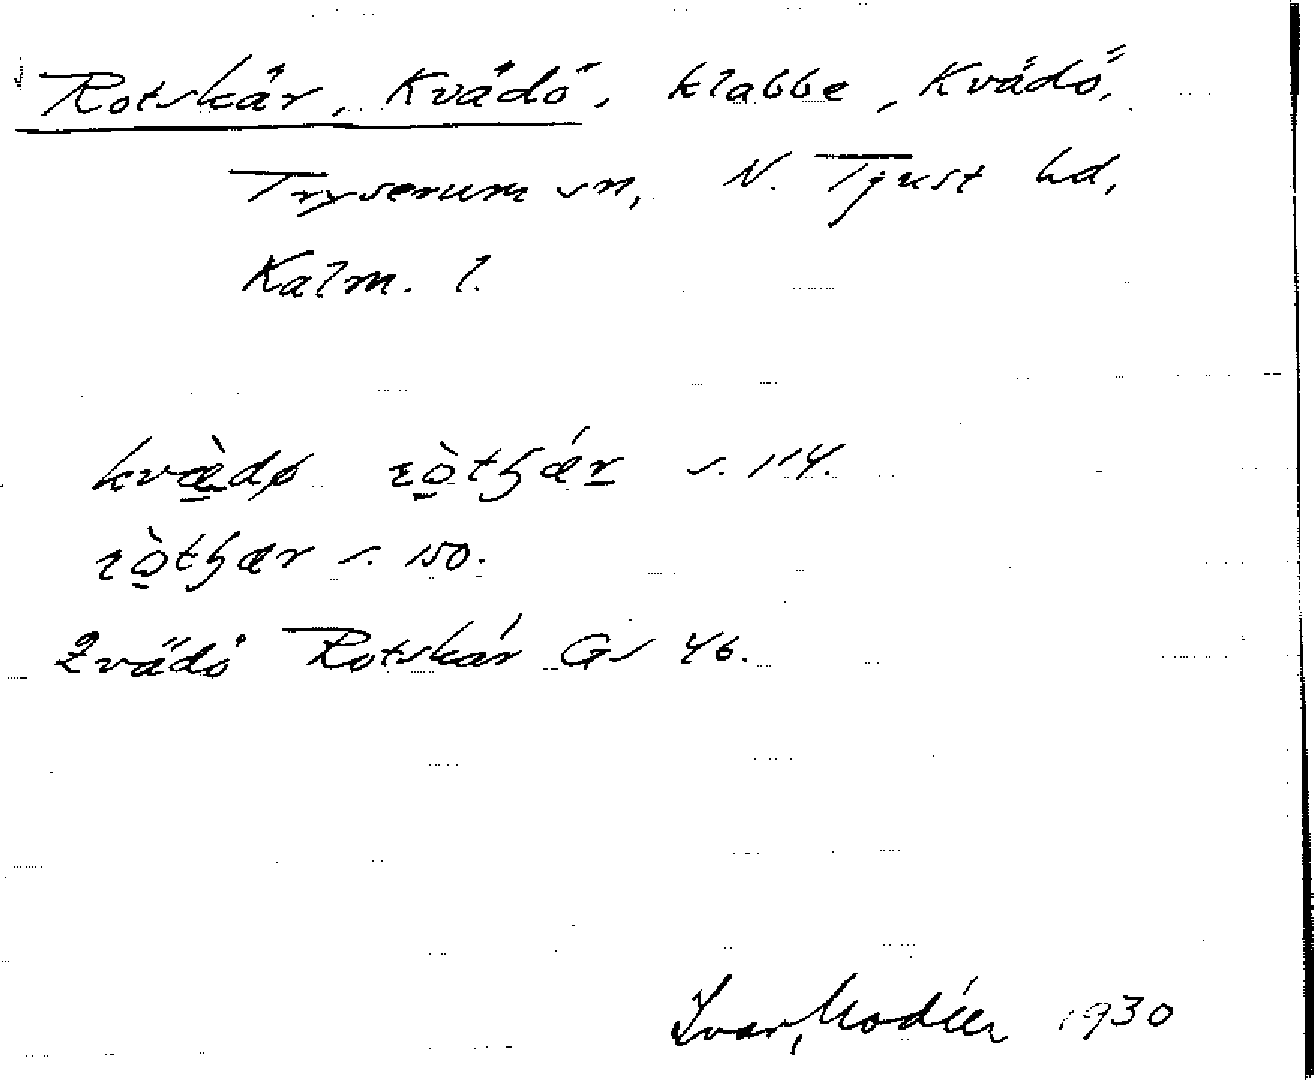 Rotskär, Kvädö, klabbe, Kvädö,
Tryserum sn, N. Tjust hd,
Kalm. l.
kvæ̀dø ròtʂǽr s. 114.
ròtʂær s. 150.
Qvädö Rotskär Gs 46.
Ivar Modéer 1930